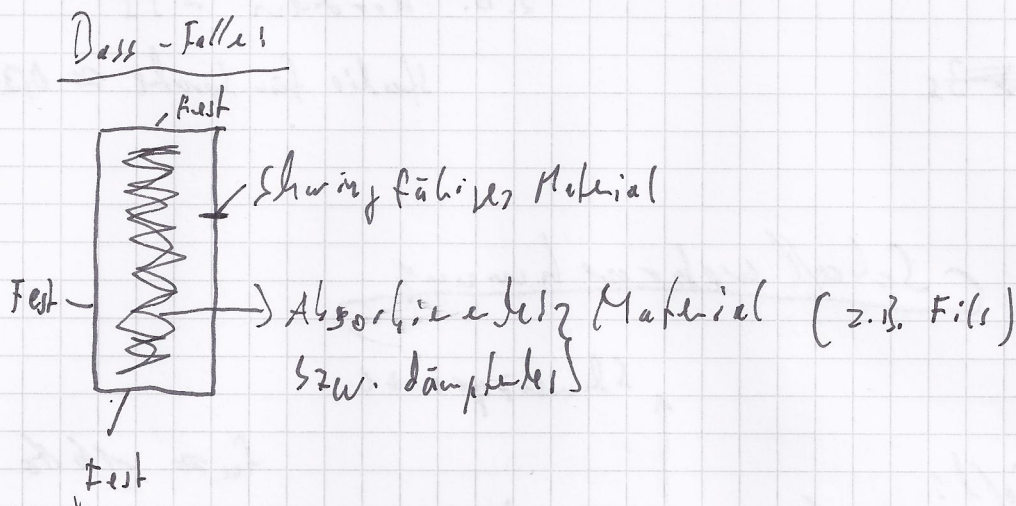 Bass-Falle:
Fest
Schwingfähiges Material
Fest
Absorbierendes Material (z.B. Filz)
bzw. dämpfendes
Fest